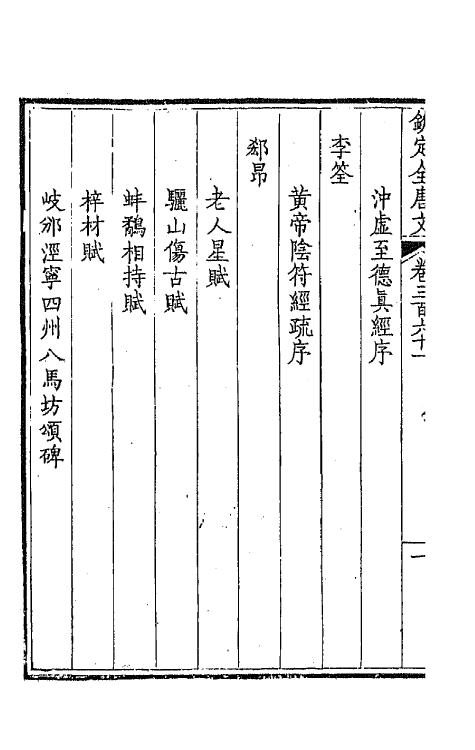 欽定全唐文 卷三百六十一 一
沖虛至德真經序
李筌
黃帝陰符經疏序
郄昂
老人星賦
驪山傷古賦
蚌鷸相持賦
梓材賦
岐邠涇寧四州八馬坊頌碑